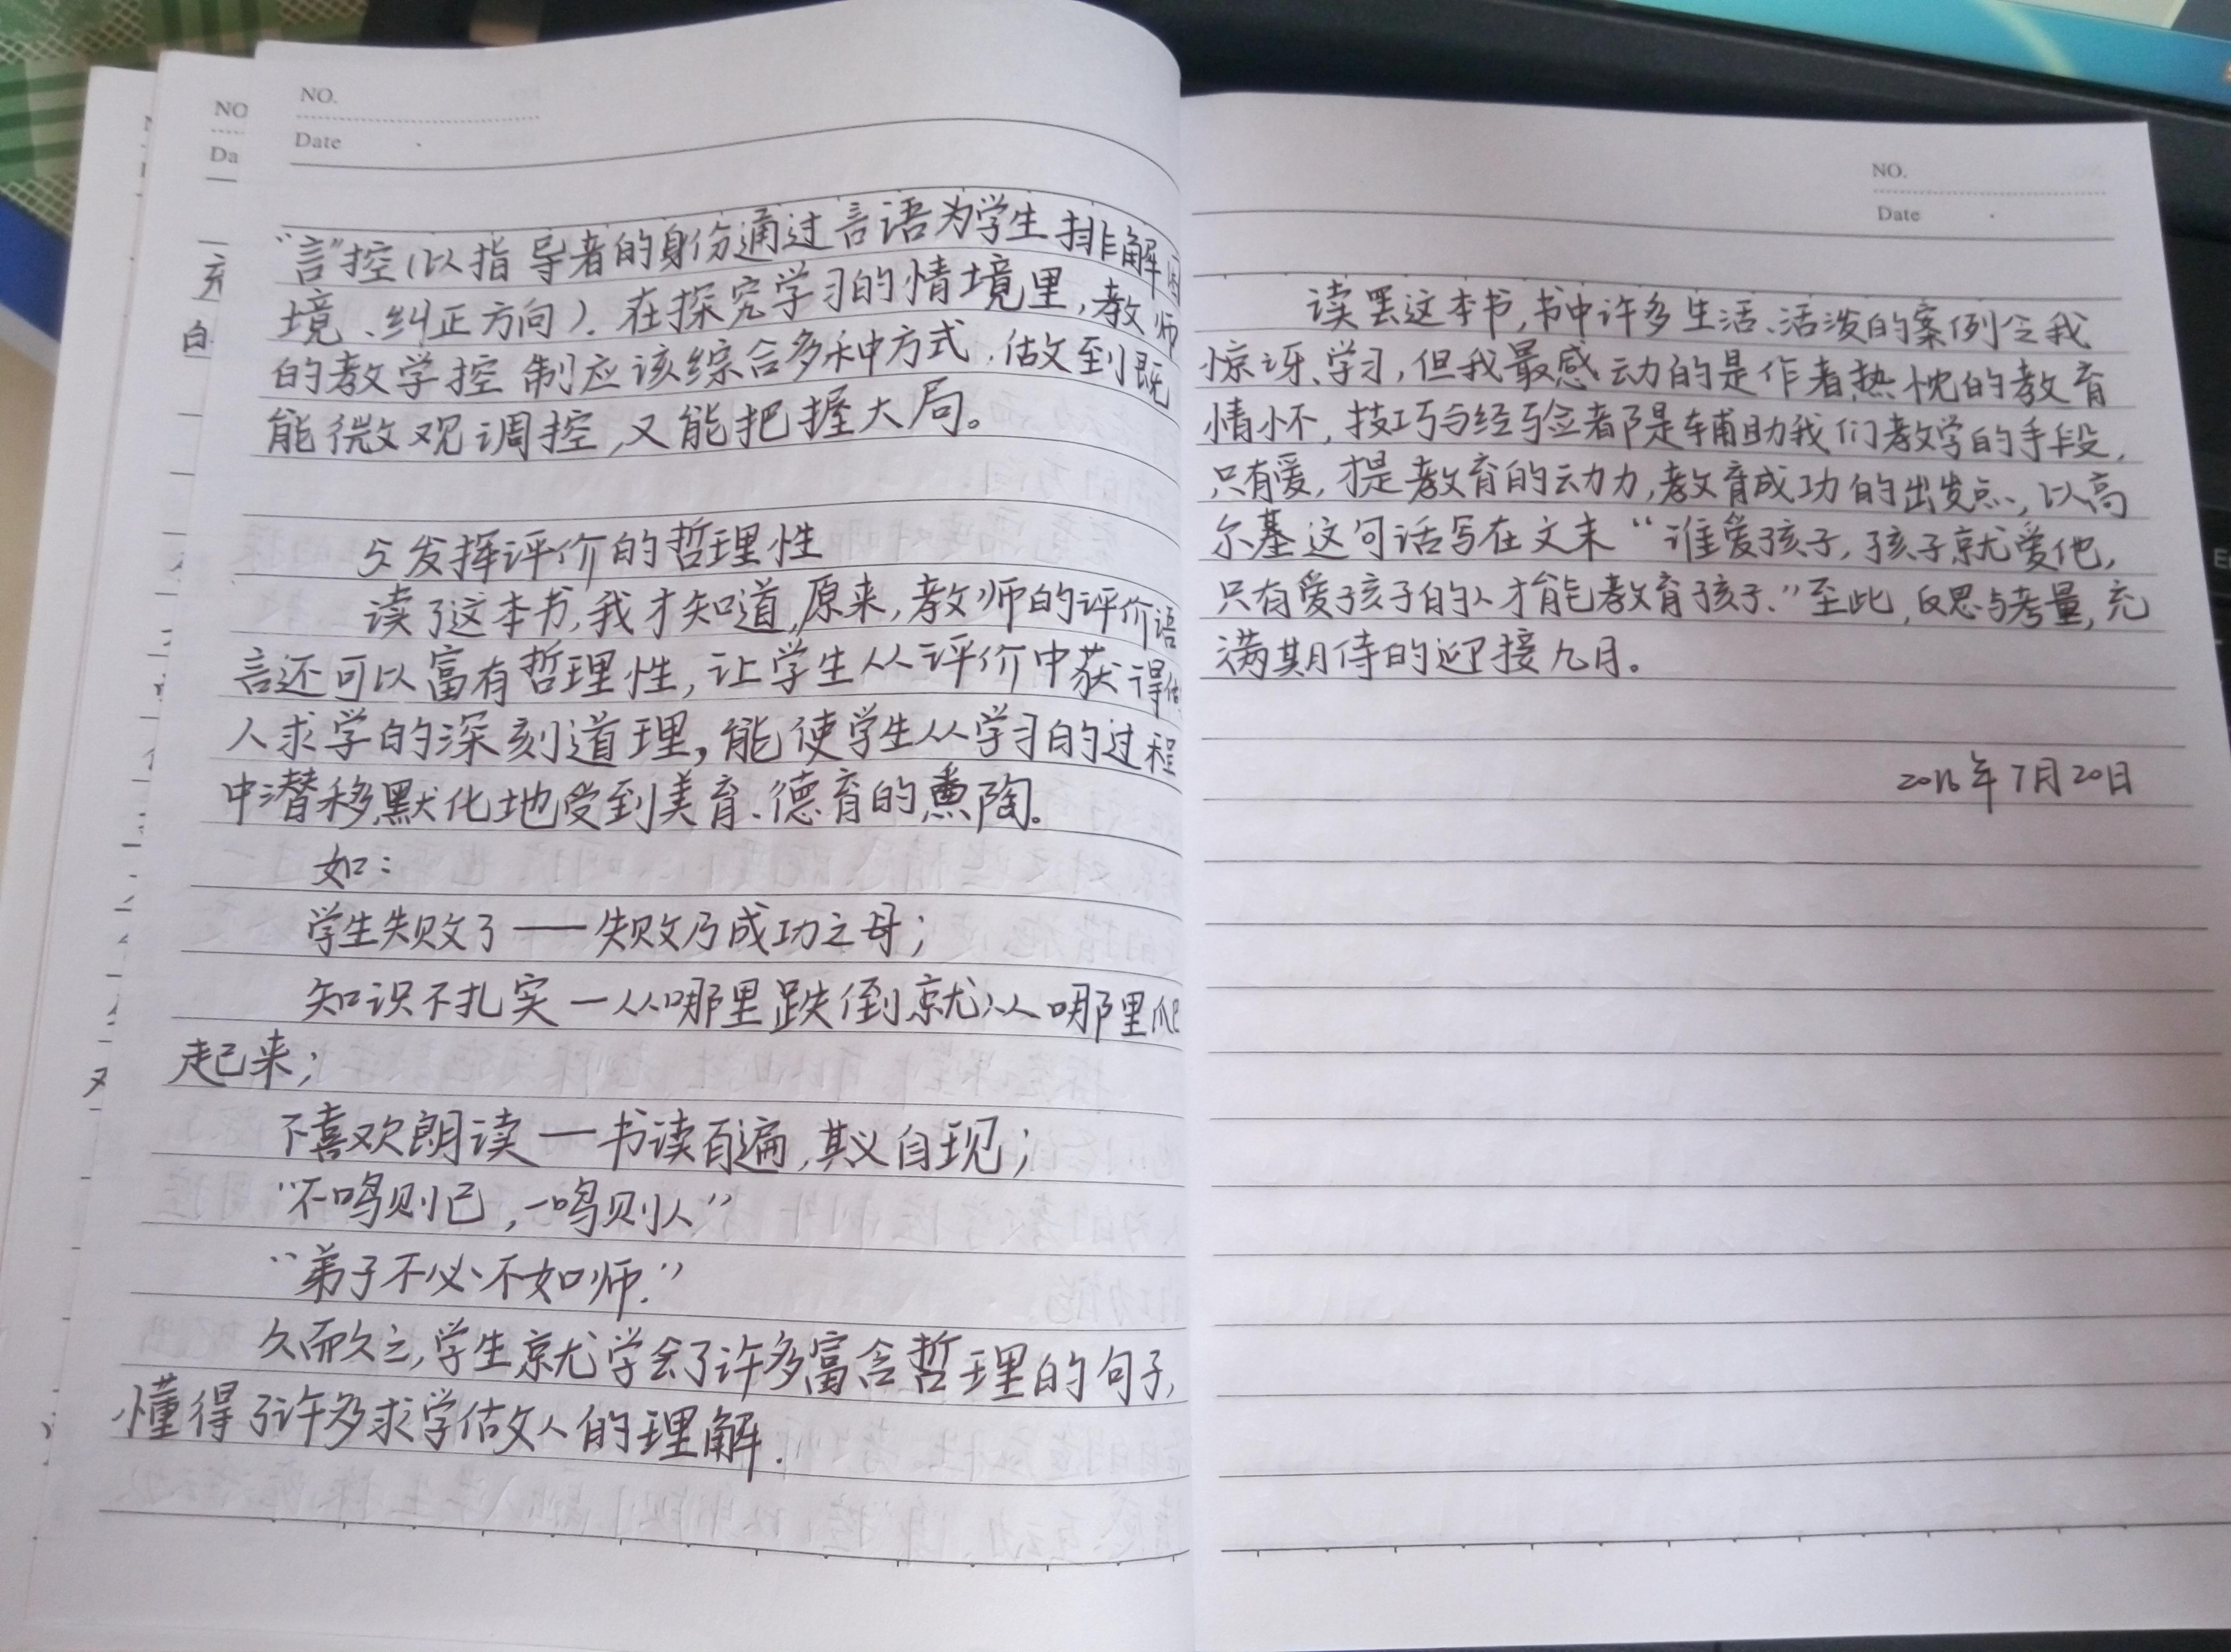 NO.
Date
"言"控(以指导者的身份通过言语为学生排解困
境、纠正方向). 在探究学习的情境里,教师
的教学控制应该综合多种方式,做到既
能微观调控,又能把握大局。
5.发挥评价的哲理性
读了这本书,我才知道,原来,教师的评价语
言还可以富有哲理性,让学生从评价中获得做
人求学的深刻道理,能使学生从学习的过程
中潜移默化地受到美育、德育的熏陶。
如:
学生失败了——失败乃成功之母;
知识不扎实—从哪里跌倒就从哪里爬
起来;
不喜欢朗读—书读百遍,其义自现;
"不鸣则已,一鸣则人"
"弟子不必不如师."
久而久之,学生就学会了许多富含哲理的句子,
懂得了许多求学做人的理解.
NO.
Date
读罢这本书,书中许多生活、活泼的案例令我
惊讶、学习,但我最感动的是作者热忱的教育
情怀,技巧与经验都是辅助我们教学的手段,
只有爱,才是教育的动力,教育成功的出发点,以高
尔基这句话写在文末"谁爱孩子,孩子就爱他,
只有爱孩子的人才能教育孩子."至此,反思与考量,充
满期待的迎接九月。
2016年7月20日
NO
Da